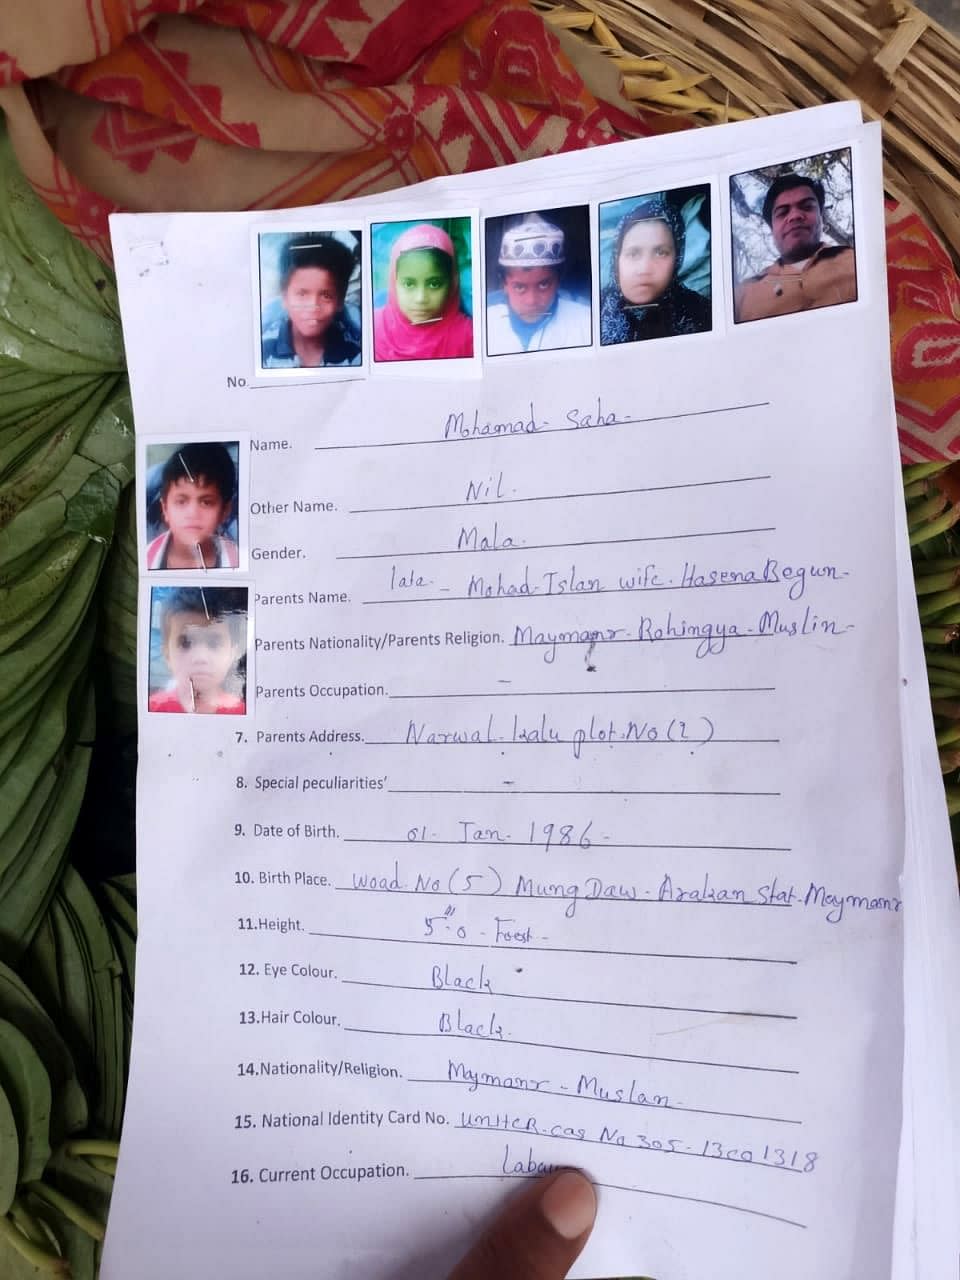 No.
Name. Mohamad - Saha -
Other Name. Nil.
Gender. Mala.
Parents Name. lata - Mohad - Islan wife . Hasena Begun -
Parents Nationality/Parents Religion. Maymanr - Rohingya - Muslin -
Parents Occupation. -
7. Parents Address. Narwal - kalu plot . No (2)
8. Special peculiarities' -
9. Date of Birth. 01 - Jan - 1986 -
10. Birth Place. Woad No (5) Mung Daw - Arakan Stat - Maymanr
11.Height. 5"0 - Foest -
12. Eye Colour. Black
13.Hair Colour. Black.
14.Nationality/Religion. Maymanr - Muslan -
15. National Identity Card No. UNHCR - cas No 305 - 13c01318
16. Current Occupation.